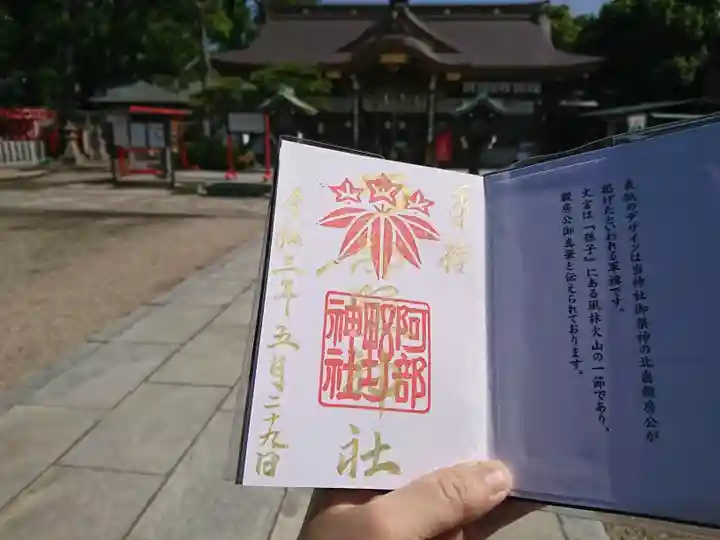 奉拝
阿部野神社
令和三年五月二十九日
阿部
野
神社
表紙のデザインは当神社御祭神の北畠顕房公が
掲げたといわれる軍旗です。
文言は「孫子」にある風林火山の一節であり、
顕房公御真筆と伝えられております。